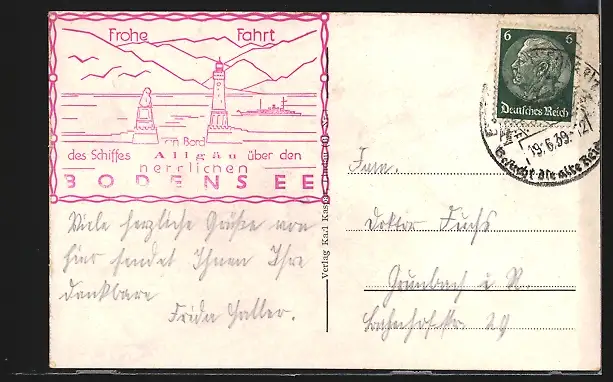 Frohe Fahrt
an Bord
des Schiffes Allgäu über den
herrlichen
BODENSEE
Viele herzliche Grüße von
hier sendet Ihnen Ihre
dankbare
Frida Haller.
Verlag Karl
6 6
Deutsches Reich
19.6.39.-12
Besucht die alte
Fam.
Doktor Fuchs
Grunbach i. R.
Bahnhofstr. 29